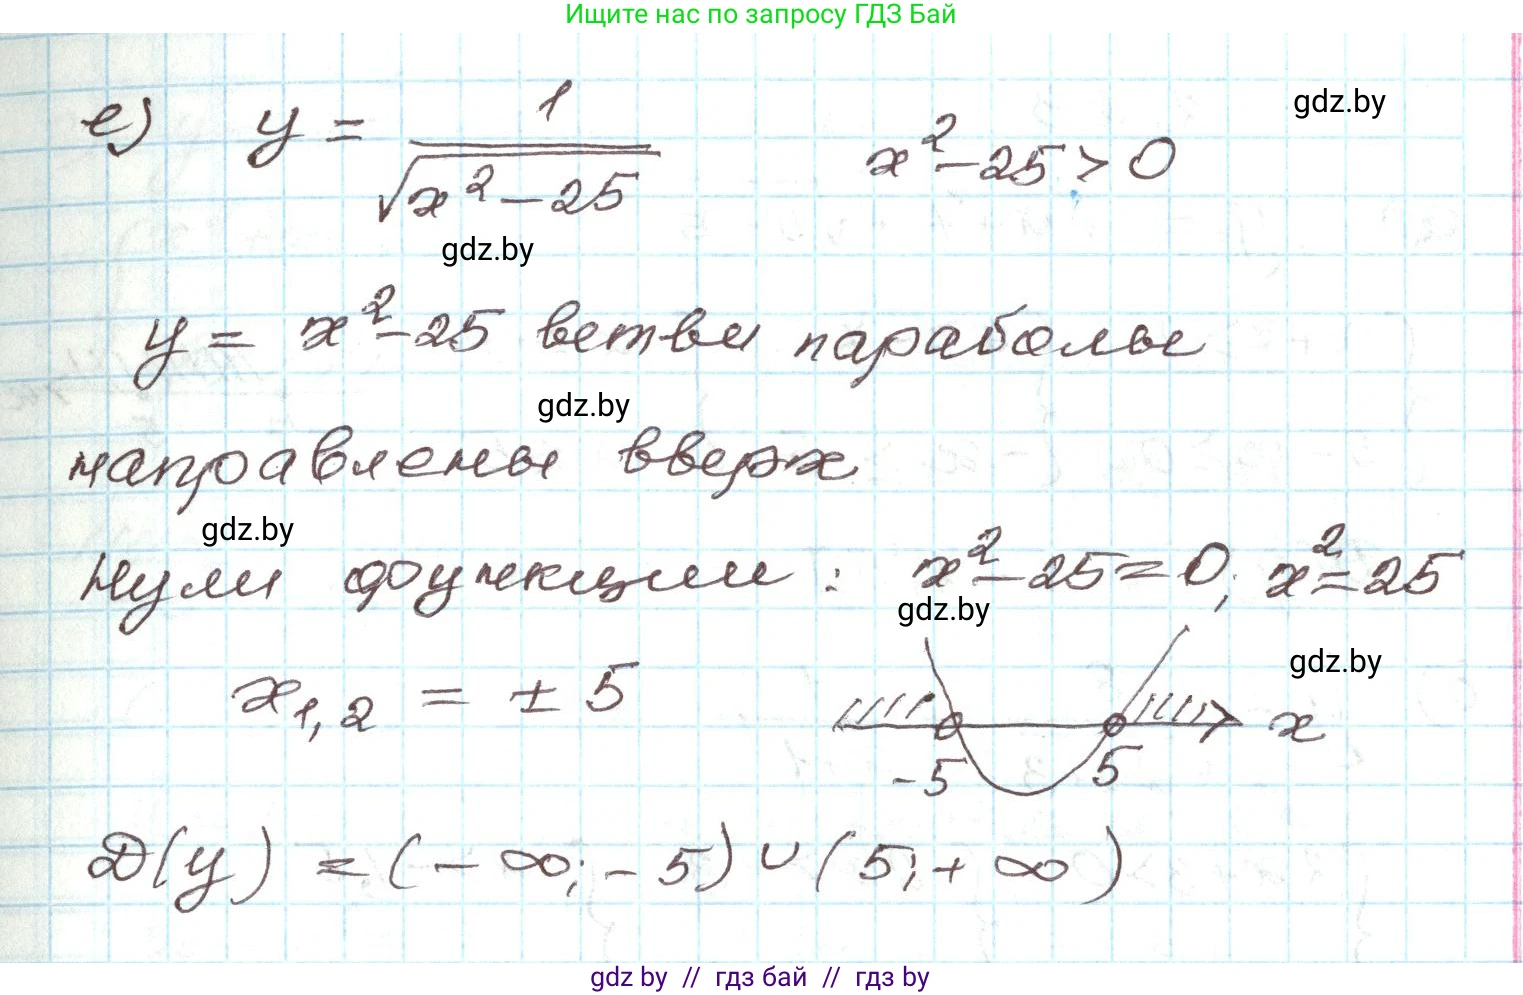 Ищите нас по запросу ГДЗ Бай
е) y = 1/√(x² - 25)    x² - 25 > 0
gdz.by
gdz.by
y = x² - 25 ветви параболы
gdz.by
направлены вверх
gdz.by
Нули функции : x² - 25 = 0; x² = 25
gdz.by
gdz.by
x₁,₂ = ± 5
x
-5 5
D(y) = (-∞; -5) ∪ (5; +∞)
gdz by // гдз бай // гдз by